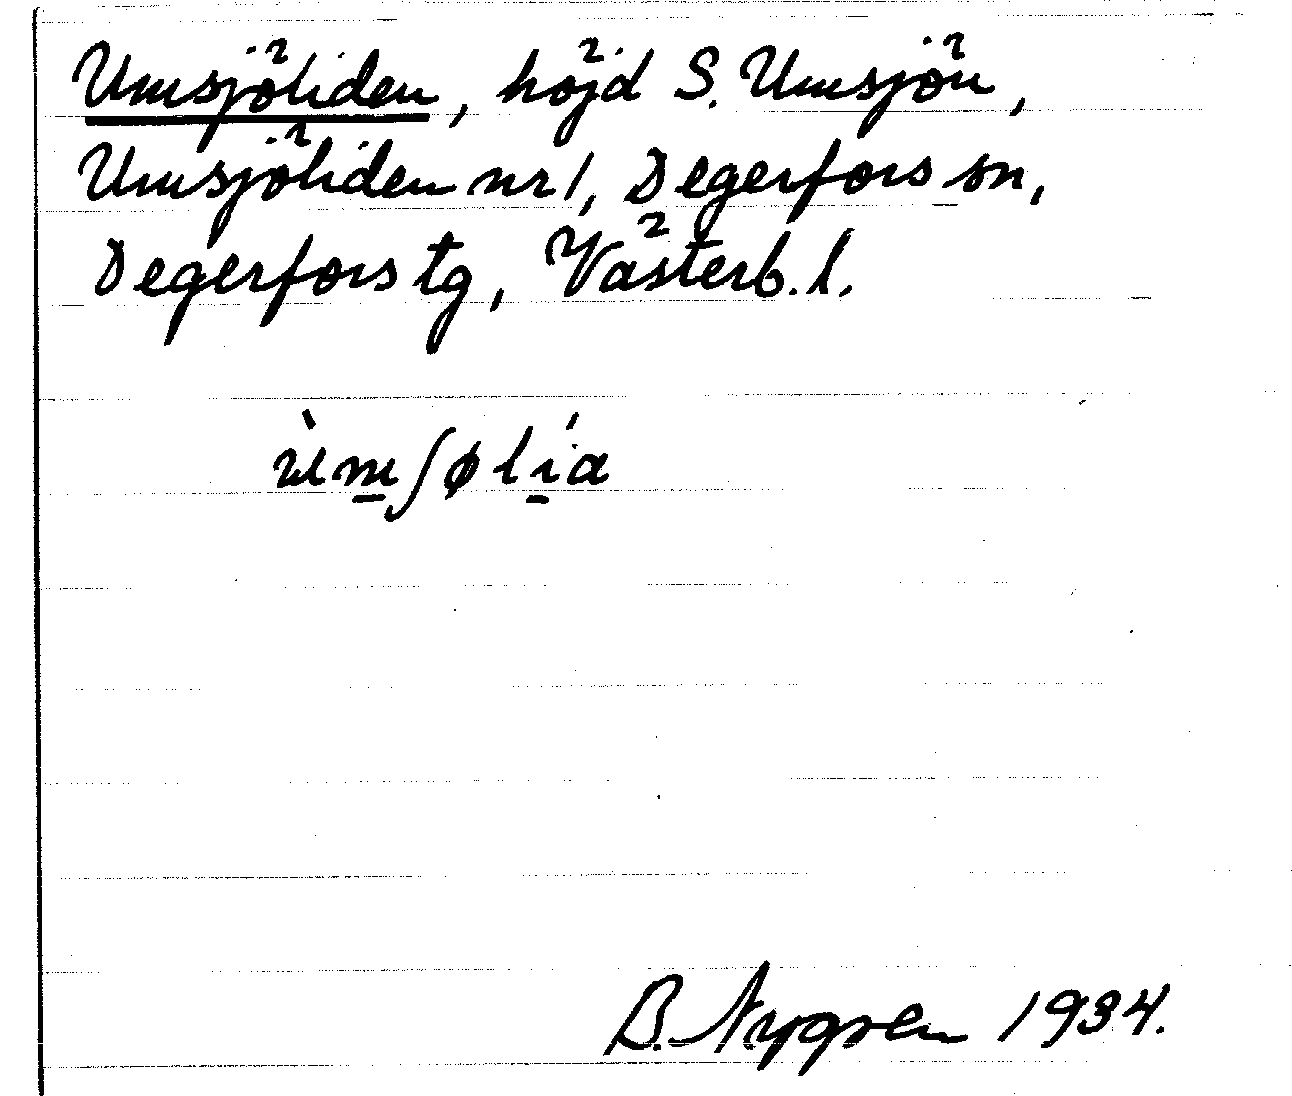 Umsjöliden, höjd S. Umsjön,
Umsjöliden nr 1, Degerfors sn,
Degerfors tg, Västerb. l.
ùm̲ʃølí̲a
B. Nygren 1934.